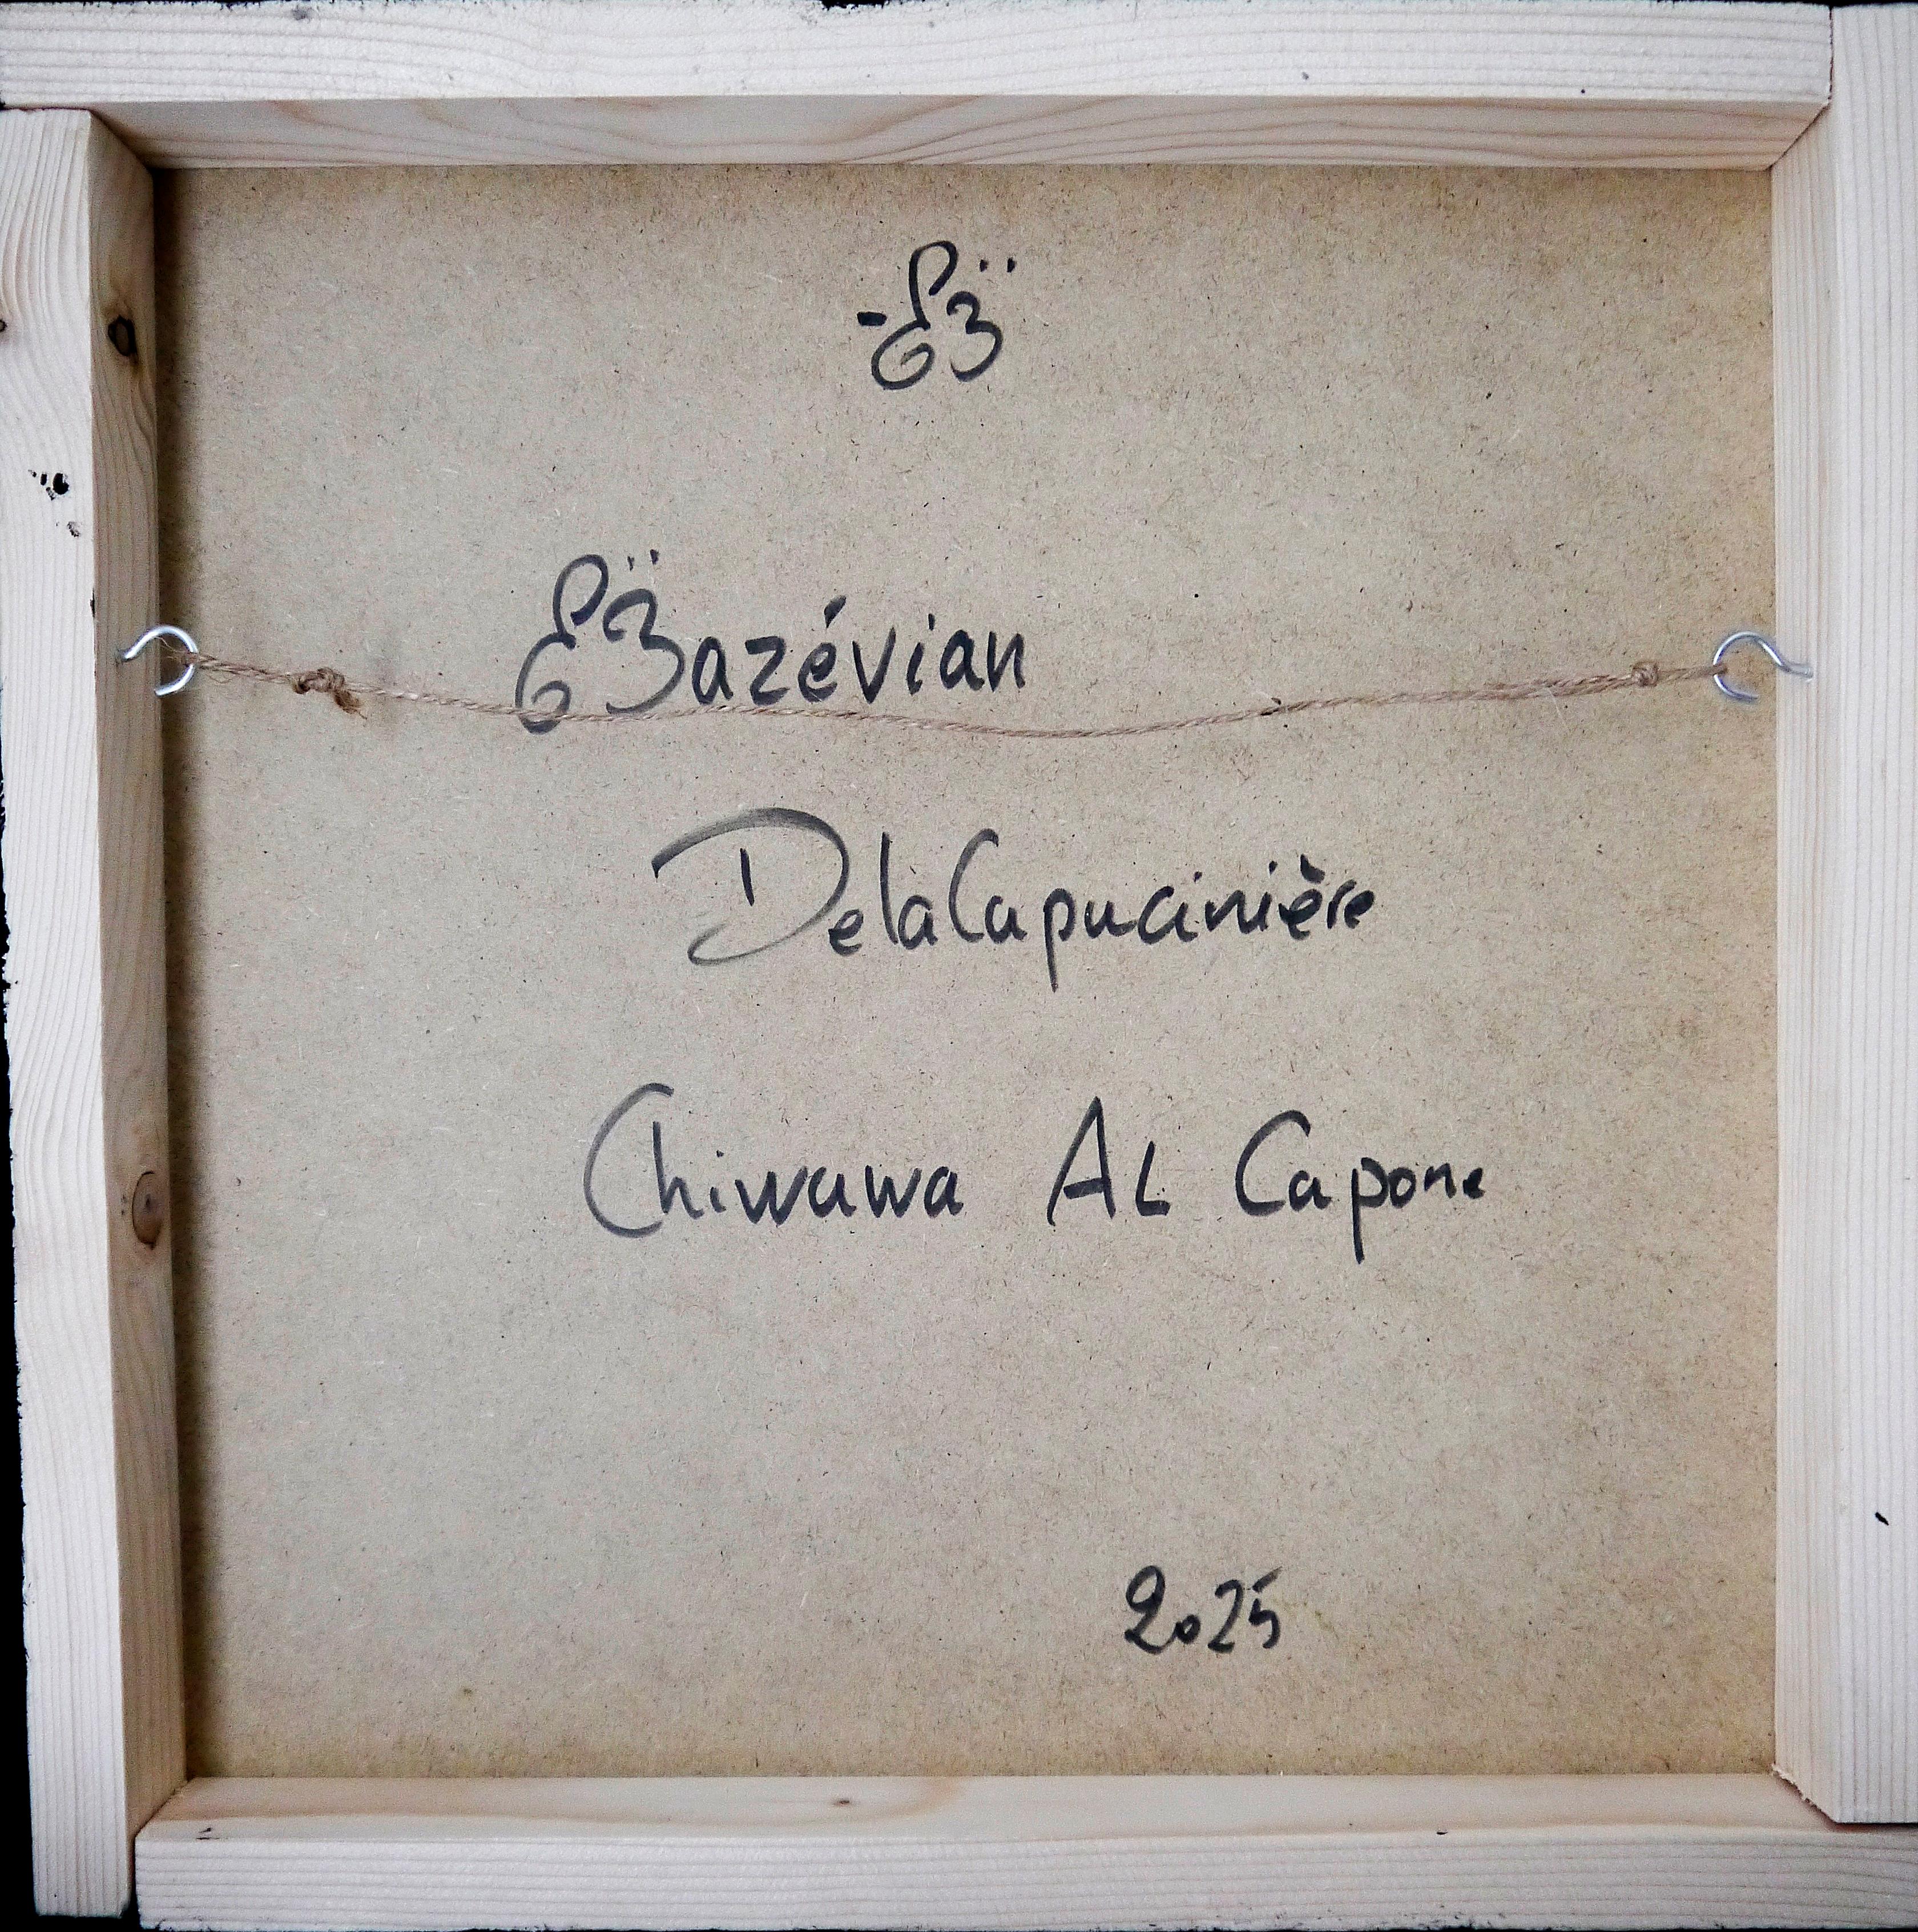 Bazévian
DelaCapucinière
Chiwawa AL Capone
2025